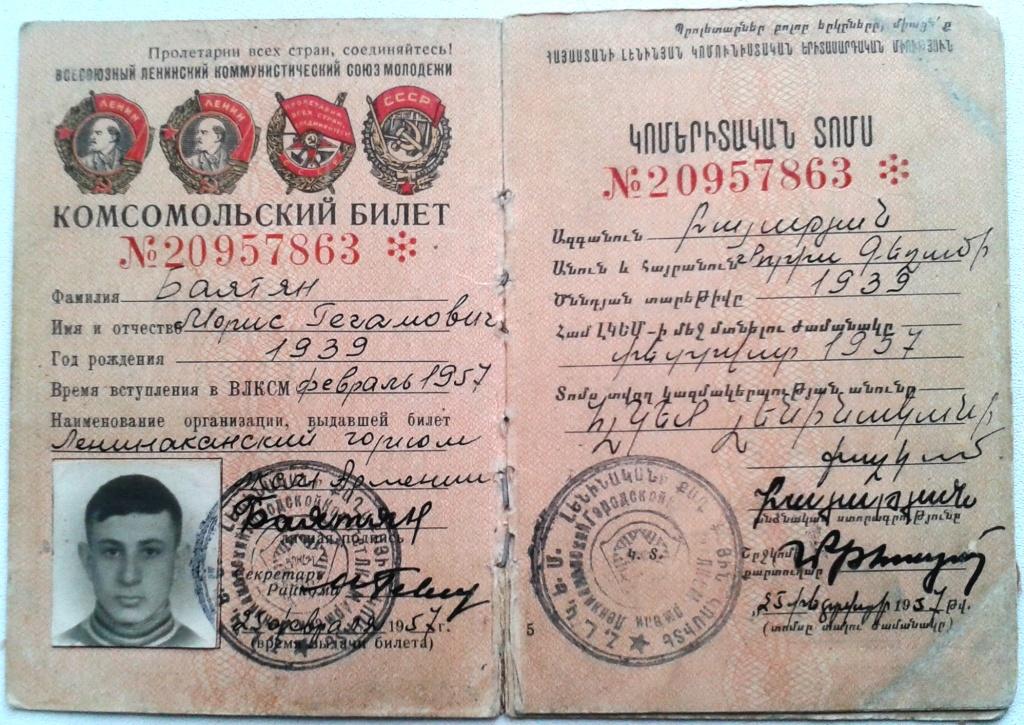 Пролетарии всех стран, соединяйтесь!
ВСЕСОЮЗНЫЙ ЛЕНИНСКИЙ КОММУНИСТИЧЕСКИЙ СОЮЗ МОЛОДЕЖИ
ЛЕНИН
ЛЕНИН
ПРОЛЕТАРИИ ВСЕХ СТРАН, СОЕДИНЯЙТЕСЬ
СССР
КОМСОМОЛЬСКИЙ БИЛЕТ
№20957863
Фамилия Баятян
Имя и отчество Морис Гегамович
Год рождения 1939
Время вступления в ВЛКСМ февраль 1957
Наименование организации, выдавшей билет
Ленинаканский горком
ЛКСМ Армении
Баятян
личная подпись
Секретарь
Райкома
25 февраля 1957 г.
(время выдачи билета)
Պրոլետարներ բոլոր երկրների, միացե՛ք
ՀԱՅԱՍՏԱՆԻ ԼԵՆԻՆՅԱՆ ԿՈՄՈՒՆԻՍՏԱԿԱՆ ԵՐԻՏԱՍԱՐԴԱԿԱՆ ՄԻՈՒԹՅՈՒՆ
ԿՈՄԵՐԻՏԱԿԱՆ ՏՈՄՍ
№20957863
Ազգանուն Բայաթյան
Անուն և Հայրանուն Մորիս Գեղամի
Ծննդյան տարեթիվը 1939
Համ ԼԿԵՄ-ի մեջ մտնելու ժամանակը
փետրվար 1957
Տոմս տվող կազմակերպության անունը
ՀԼԿԵՄ Լենինականի
քաղկոմ
Բայաթյան
անձնական ստորագրությունը
Շրջկոմի
քարտուղար
25 փետրվարի 1957 թվ.
(տոմսը տալու ժամանակը)
Կ. Տ.
5